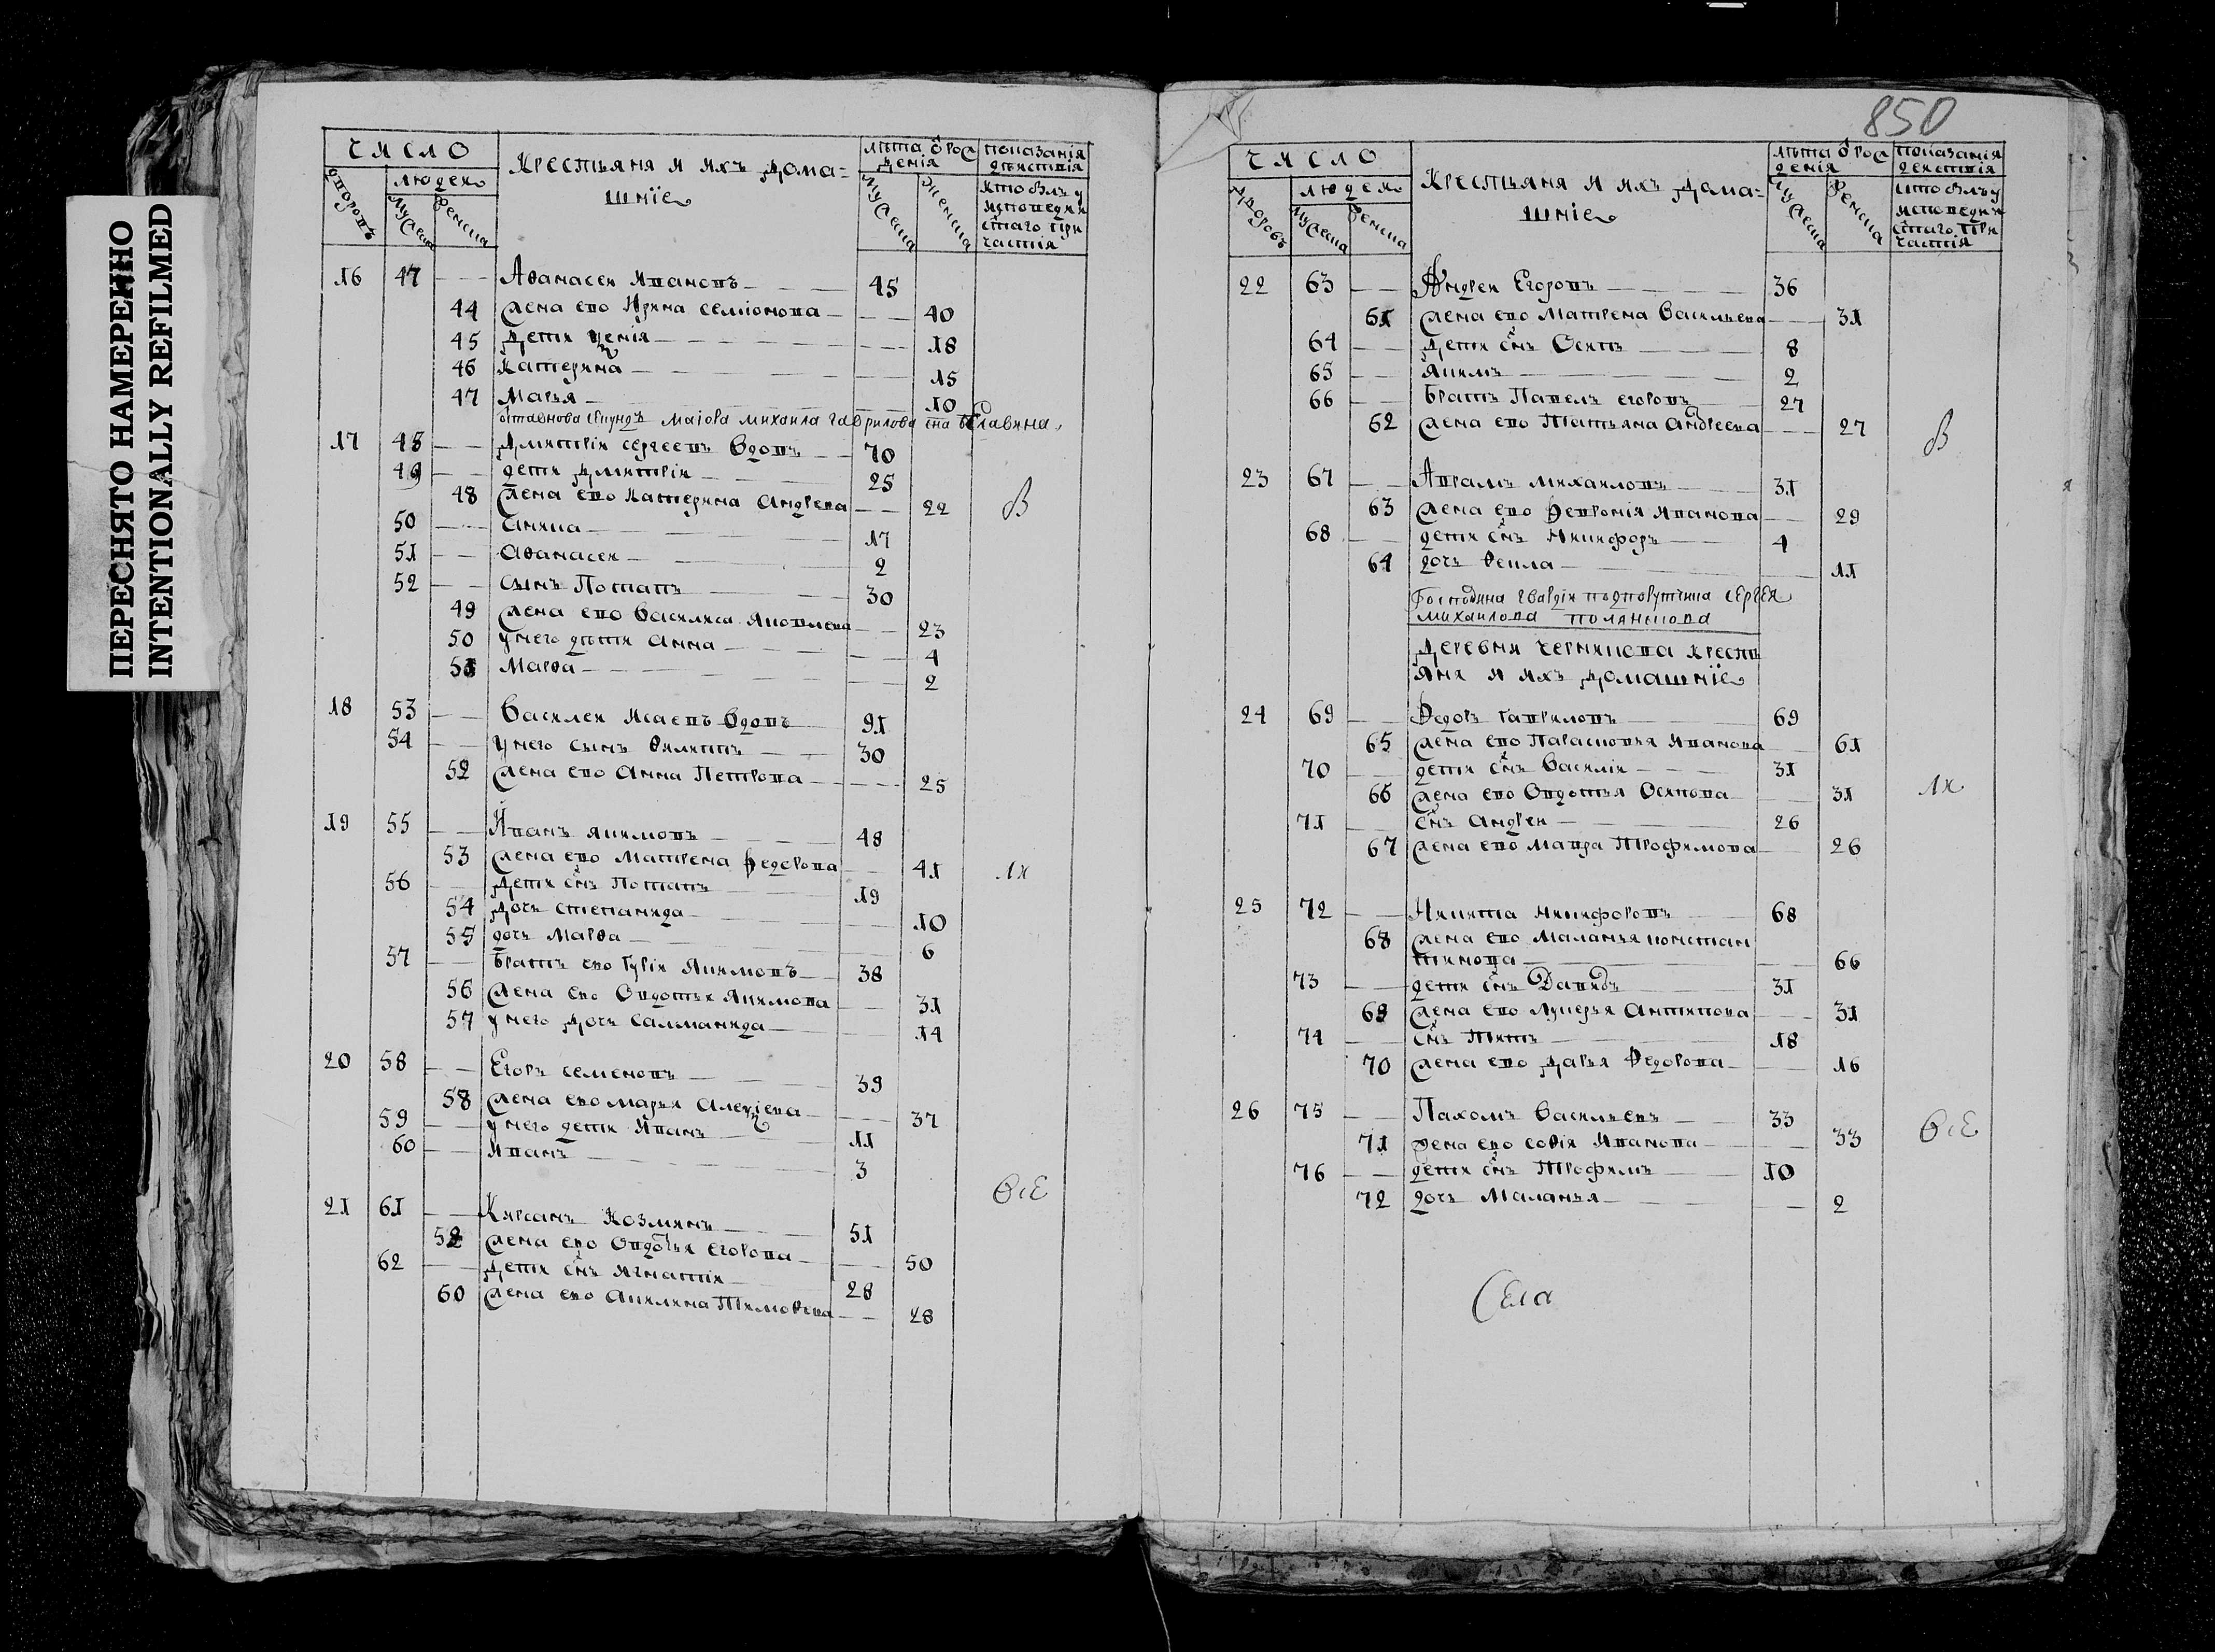 ПЕРЕСНЯТО НАМЕРЕННО
INTENTIONALLY REFILMED
ЧИСЛО
дворовъ
людеи
мужеска
женска
Крестьяня и ихъ дома=
шніе
лѣта ѿ рож
денія
мужеска
женска
показанія
дѣиствія
кто былъ у
исповеди и
с͠таго при
частія
16 47 — Аѳанасеи Ивановъ — 45
44 жена ево Ирина семіонова — 40
45 дети — 18
46 Катерина — 15
47 Марья — 10
отставнова секундъ маіора михаила гаврилова сна
17 48 — Дмитріи сергеевъ вдовъ — 70
49 — дети Дмитріи — 25
48 жена ево Катерина Андреева — 22
В
50 — Аника — 17
51 — Аѳанасеи — 2
52 — сынъ Потапъ — 30
49 жена ево Василиса Яковлева — 23
50 у него дѣти Анна — 4
51 Марѳа — 2
18 53 — Василеи Исаевъ вдовъ 91
54 — у него сынъ Филиппъ — 30
52 жена ево Анна Петрова — 25
19 55 — Иванъ Якимовъ — 48
53 жена ево Матрена Федорова — 41
их
56 — Дети с͠нъ Потапъ — 19
54 Дочь степанида — 10
55 дочь Марѳа — 6
57 — братъ ево Гуріи Якимовъ — 38
56 жена ево Овдотья Якимова — 31
57 у него Дочь саламанида — 14
20 58 — Егоръ семеновъ — 39
58 жена ево марья Алекѯіева — 37
59 — у него дети Иванъ — 11
60 — Иванъ — 3
ВсЕ
21 61 — Кирсанъ Козминъ — 51
59 жена ево Овдотья Егорова — 50
62 — Дети с͠нъ Игнатіи — 28
60 жена ево Акилина Тимоѳеева — 28
850
ЧИСЛО
дворовъ
людеи
мужеска
женска
Крестьяня и ихъ дома=
шніе
лѣта ѿ рож
денія
мужеска
женска
показанія
деиствія
кто былъ у
исповеди и
с͠таго при
частія
22 63 — Андреи Егоровъ — 36
61 жена ево Матрена Васильева — 31
64 — Дети с͠нъ Осипъ — 8
65 — Якимъ — 2
66 — братъ Павелъ егоровъ — 27
62 жена ево Татьяна Андреева — 27
В
23 67 — Аврамъ михаиловъ — 31
63 жена ево Февронія Иванова — 29
68 — дети с͠нъ Никифоръ — 4
64 дочь Фекла — 11
Господина гвардіи подпорутчика СЕРГЕЯ
михаилова поливанова
Деревни черникова крестъ
яня и ихъ домашніе
24 69 — Федоръ гавриловъ — 69
65 жена ево Парасковья Иванова — 61
70 — дети с͠нъ Василіи — 31
66 жена ево Овдотья Осипова — 31
их
71 — с͠нъ Андреи — 26
67 жена ево мавра Трофимова — 26
25 72 — Никита никифоровъ — 68
68 жена ево маланья констан
тинова — 66
73 — дети с͠нъ Давидъ — 31
69 жена ево Лукерья Антипова — 31
74 — с͠нъ Титъ — 18
70 жена ево дарья Федорова — 16
26 75 — Пахомъ Васильевъ — 33
71 жена ево софія Иванова — 33
ВсЕ
76 — дети с͠нъ Трофимъ — 10
72 дочь маланья — 2
Села